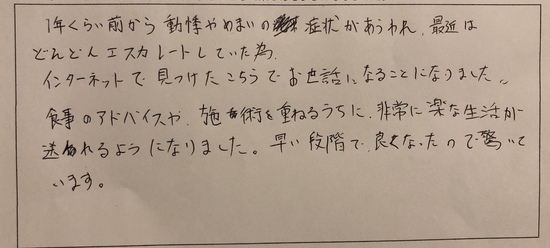 1年くらい前から動悸やめまいの症状があらわれ、最近は
どんどんエスカレートしていた為、
インターネットで見つけたこちらでお世話になることになりました。
食事のアドバイスや、施術を重ねるうちに、非常に楽な生活が
送れるようになりました。早い段階で良くなったので驚いて
います。